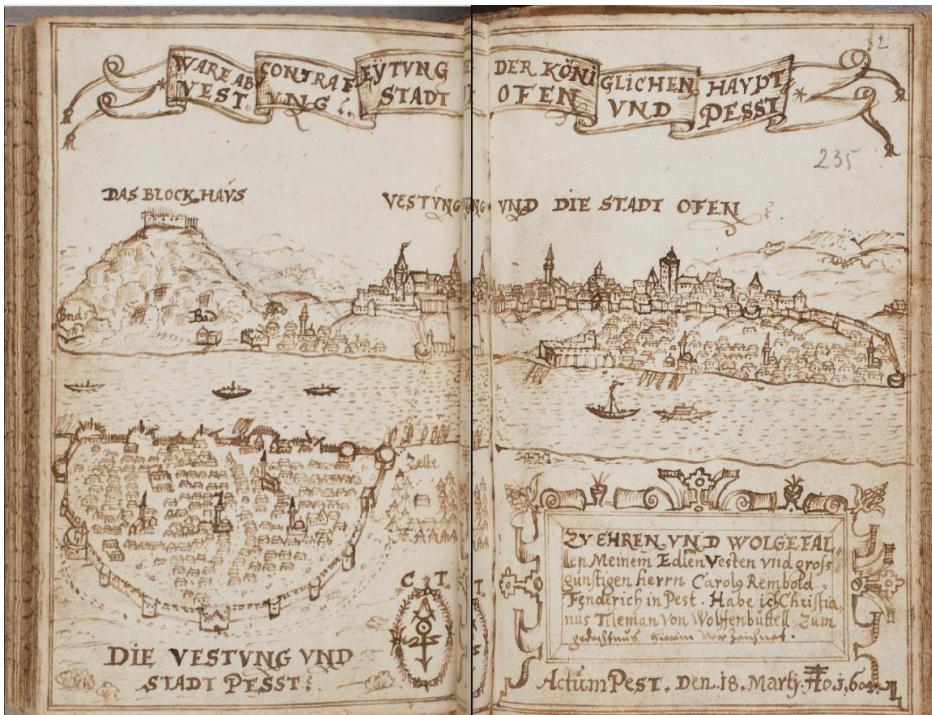 WARE AB CONTRAF EŸTVNG DER KÖNI GLICHEN HAVDT
VEST VNG STADT OFEN VND PESST
12
235
DAS BLOCK HAVS
VESTVNG VND DIE STADT OFEN
Bad
Zelte
ZV EHREN VND WOLGEFAL
len Meinem Edlen Vesten vnd gros
günstigen herrn Carolo Rembold
Fenderich in Pest. Habe ich Christia
nus Tileman von Wolffenbüttell. Zum
C T.
DIE VESTVNG VND
STADT PESST:
Actum Pest. Den. 18. Martij.